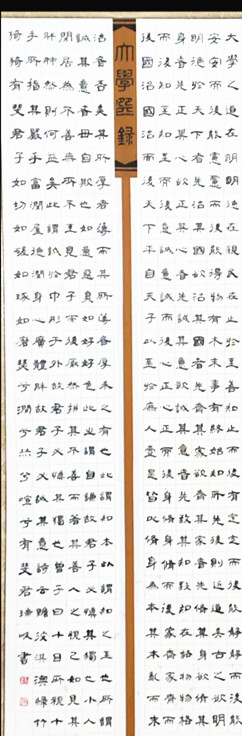 大學選錄
大學之道在明明德在親民在止於至善知止而後有定定而後能靜靜而後能
安安而後能慮慮而後能得物有本末事有終始知所先後則近道矣古之欲明
明德於天下者先治其國欲治其國者先齊其家欲齊其家者先脩其身欲脩其
身者先正其心欲正其心者先誠其意欲誠其意者先致其知致知在格物物格
而後知至知至而後意誠意誠而後心正心正而後身脩身脩而後家齊家齊而
後國治國治而後天下平自天子以至於庶人壹是皆以脩身為本其本亂而末
治者否矣其所厚者薄而其所薄者厚未之有也此謂知本此謂知之至也所謂
誠其意者毋自欺也如惡惡臭如好好色此之謂自謙故君子必慎其獨也小人
閒居為不善無所不至見君子而后厭然揜其不善而著其善人之視己如見其
肺肝然則何益矣此謂誠於中形於外故君子必慎其獨也曾子曰十目所視十
手所指其嚴乎富潤屋德潤身心廣體胖故君子必誠其意詩曰瞻彼淇澳菉竹
猗猗有斐君子如切如磋如琢如磨瑟兮僩兮赫兮喧兮有斐君子 書